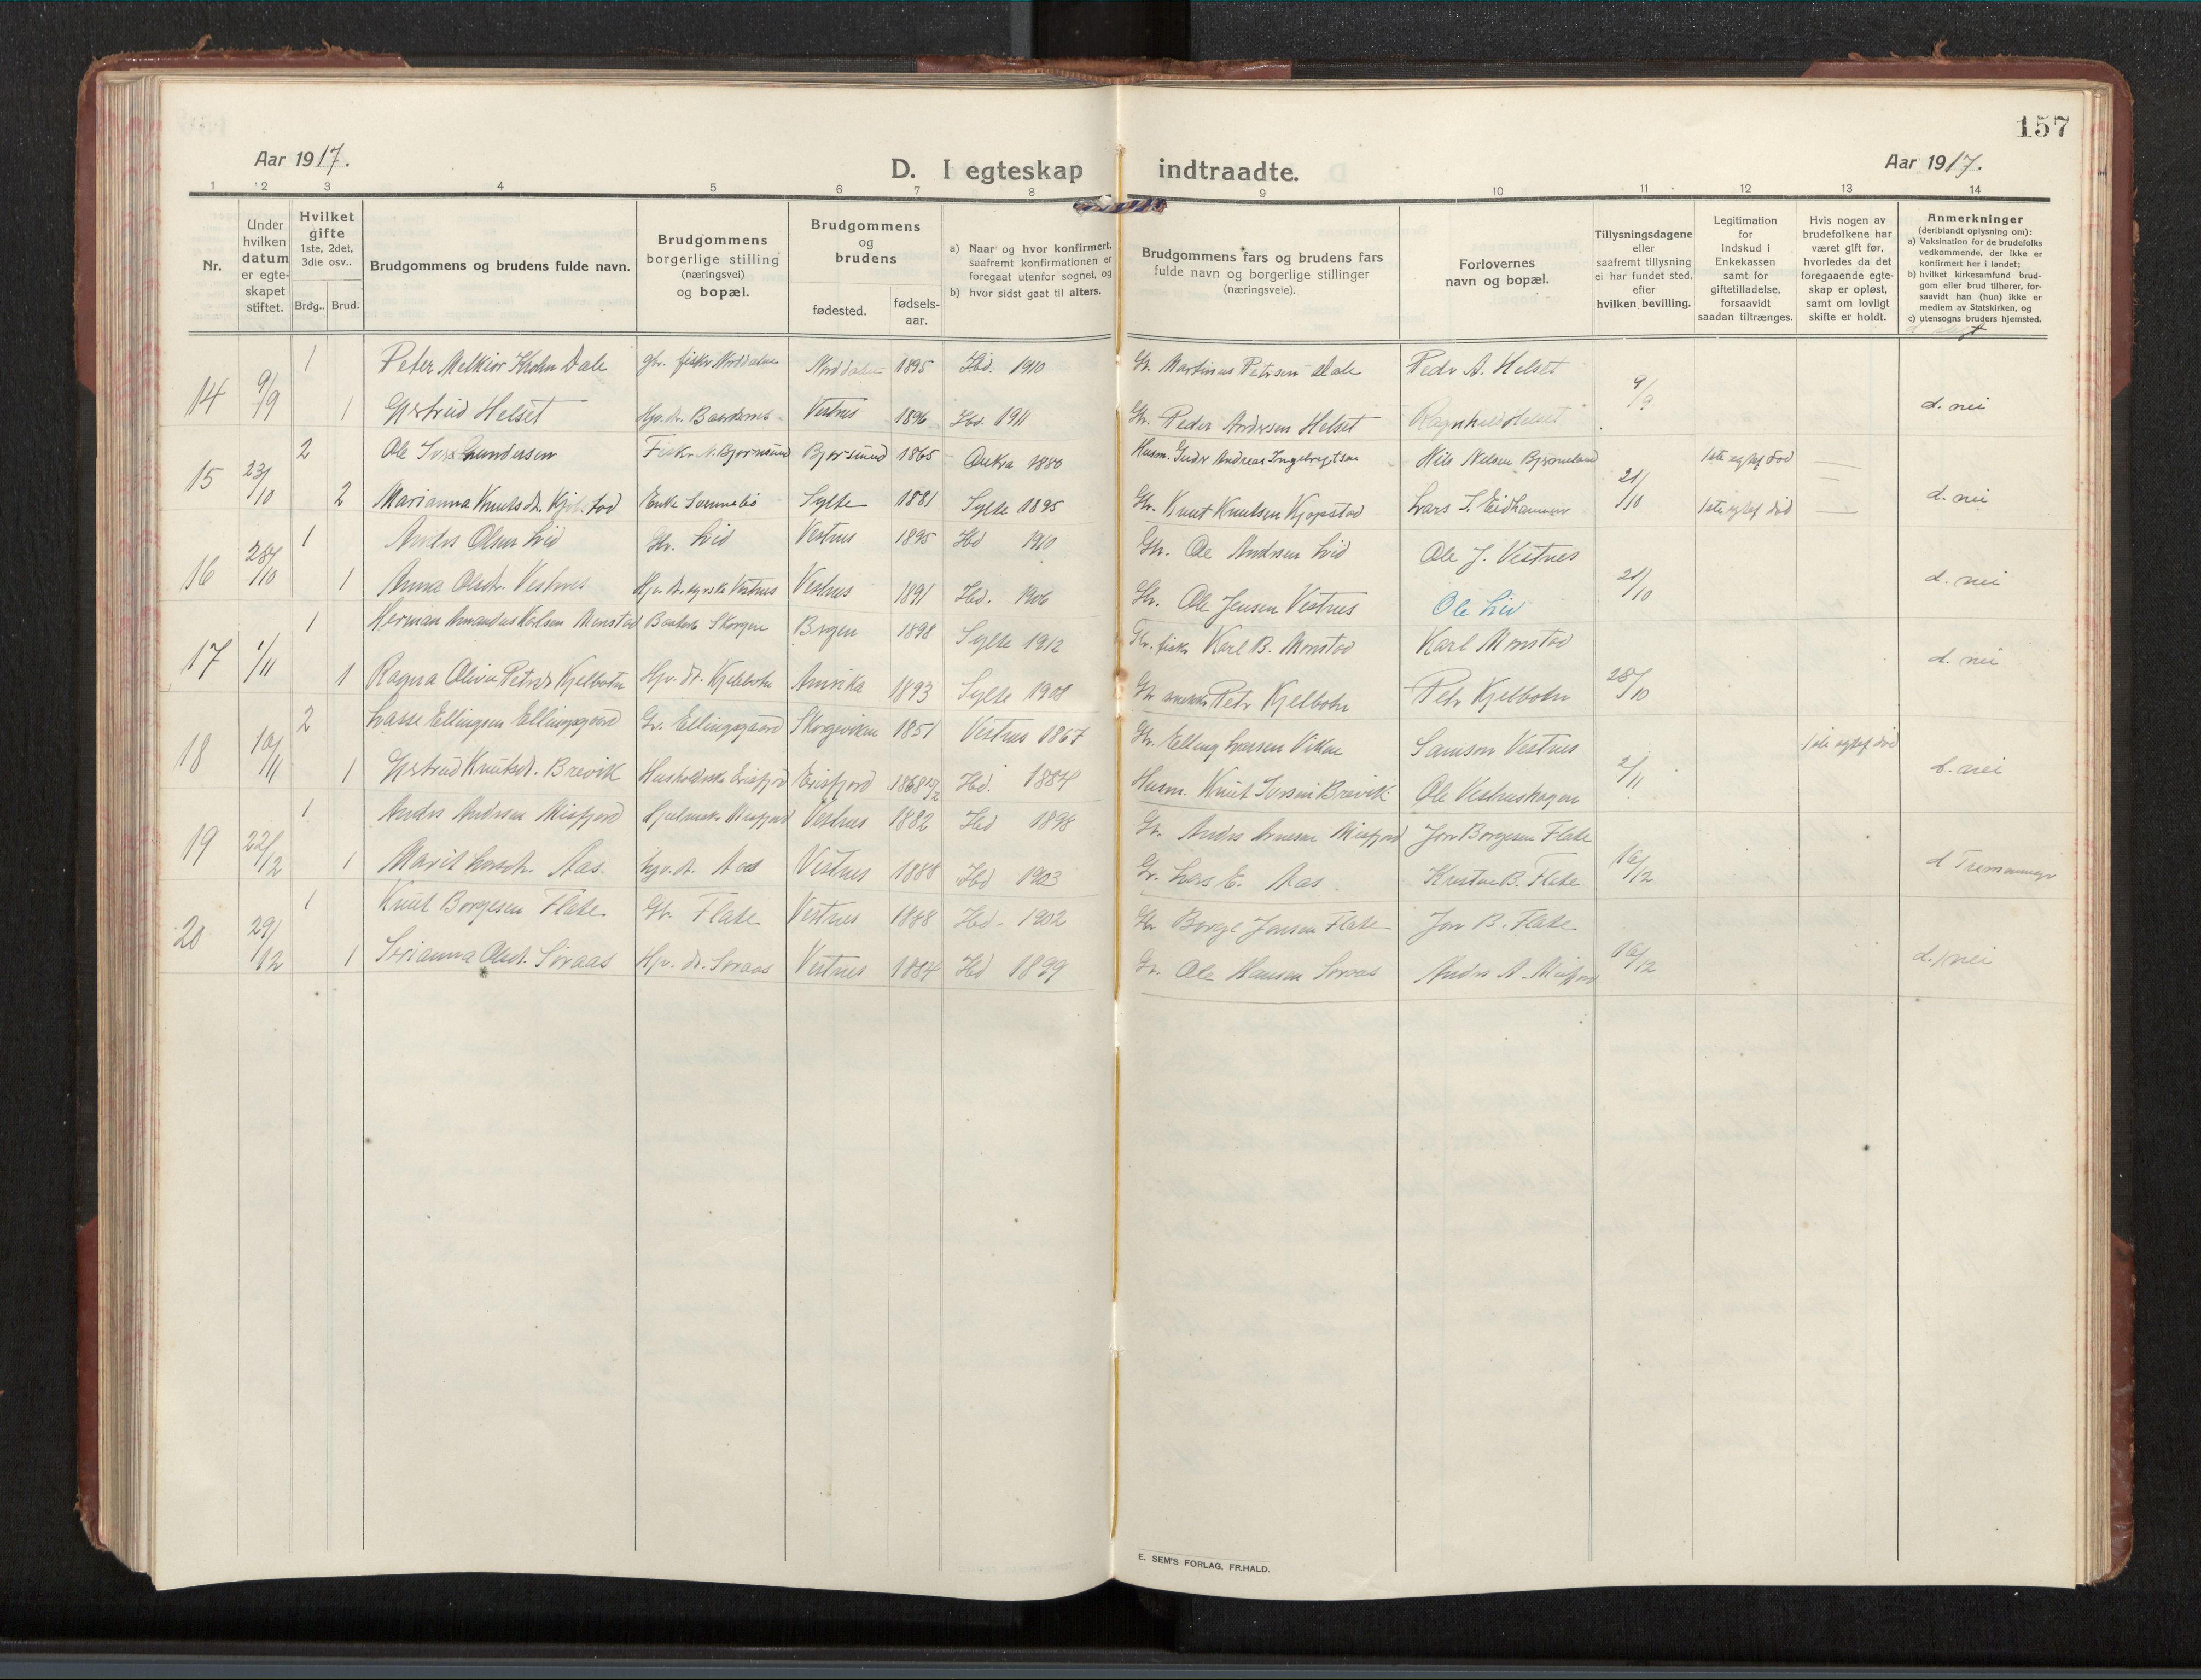 157
Aar 1917.
D. I egteskap indtraadte.
Aar 1917.
1 2 3 4 5 6 7 8 9 10 11 12 13 14
Nr.
Under hvilken datum er egte- skapet stiftet.
Hvilket gifte 1ste, 2det, 3die osv.. Brdg.. Brud.
Brudgommens og brudens fulde navn.
Brudgommens borgerlige stilling (næringsvei) og bopæl.
Brudgommens og brudens fødested. fødsels- aar.
a) Naar og hvor konfirmert, saafremt konfirmationen er foregaat utenfor sognet, og
b) hvor sidst gaat til alters.
Brudgommens fars og brudens fars fulde navn og borgerlige stillinger (næringsveie).
Forlovernes navn og bopæl.
Tillysningsdagene eller saafremt tillysning ei har fundet sted. efter hvilken bevilling.
Legitimation for indskud i Enkekassen samt for giftetilladelse, forsaavidt saadan tiltrænges.
Hvis nogen av brudefolkene har været gift før, hvorledes da det foregaaende egte- skap er opløst, samt om lovligt skifte er holdt.
Anmerkninger (deriblandt oplysning om):
a) Vaksination for de brudefolks vedkommende, der ikke er konfirmert her i landet;
b) hvilket kirkesamfund brud- gom eller brud tilhører, for- saavidt han (hun) ikke er medlem av Statskirken, og
c) utensogns bruders hjemsted.
1 Peter Melkior Krohn Dale Norddalen 1895 Hbd. 1910 Gr. Martinus Petersen Dale Peder A. Helset
14 9/9 1 Gjertrud Helset Vestnes 1896 Hbd. 1911 Gr. Peder Andersen Helset Ragnhild Helset 9/9 d. nei
2 Ole Gundersen Fisker Bjørnsund 1865 Aukra 1880 Husm. Andreas Ingebrigtsen Nils Nilsen 1ste egtef død
15 23/10 2 Marianna Knutsdt. Enke Sylte 1881 Sylte 1895 Gr. Knut Knutsen Lars 21/10 1ste egtef død d. nei
1 Anders Olsen Lid Gr. Lid Vestnes 1895 Hbd 1910 Gr. Ole Andersen Lid Ole J. Vestnes
16 28/10 1 Anna Olsdt. Vestnes Vestnes 1891 Hbd. 1906 Gr. Ole Jensen Vestnes Ole Lid 21/10 d. nei
1 Herman Amandus Karlsen Monstad Skorgen Bergen 1898 Sylte 1912 Gr. fisker Karl B. Monstad Karl Monstad
17 1/11 1 Ragna Olivie Petersdt Kjelbotn Hjv. dt. Kjelbotn Amerika 1893 Sylte 1908 Gr. Peter Kjelbotn Peter Kjelbotn 28/10 d. nei
2 Lasse Ellingsen Ellingsgaard Gr. Ellingsgaard Skorgeviken 1851 Vestnes 1867 Gr. Elling Larsen Viken Samson Vestnes 1ste egtef død
18 10/11 1 Gjertrud Knutsdt. Brevik Eresfjord 1868 Hbd. 1884 Husm. Knut Iversen Brevik Ole Vestneshagen 2/11 d. nei
1 Anders Andersen Misfjord Misfjord Vestnes 1882 Hbd 1898 Gr. Anders Arnesen Misfjord Jon Børgesen Flate
19 22/12 1 Marit Larsdt. Aas. Hjv. dt. Aas Vestnes 1888 Hbd 1903 Gr. Lars E. Aas Kristen B. Flate 16/12 d Tremenninger
1 Knut Børgesen Flate Gr. Flate Vestnes 1888 Hbd. 1902 Gr Børge Jonsen Flate Jon B. Flate
20 29/12 1 Serianna Olsdt. Søraas Hjv. dt. Søraas Vestnes 1884 Hbd 1899 Gr. Ole Hansen Søraas Anders A. Misfjord 16/12 d. nei
E. SEM'S FORLAG, FR.HALD.